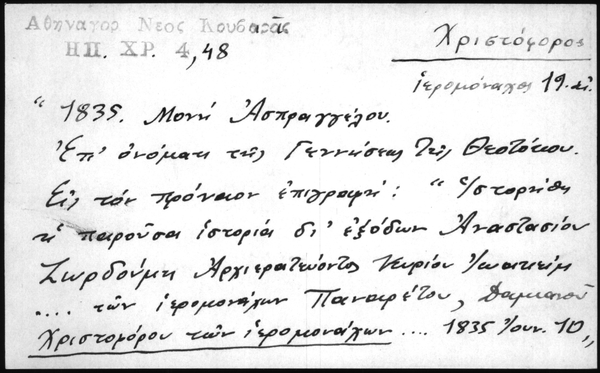 Αθηναγορ Νεος Κουβαρᾶς
ΗΠ. ΧΡ. 4, 48
Χριστόφορος
ἱερομόναχος 19. αἰ.
" 1835. Μονή Ἀσπραγγέλου.
Ἐπ' ὀνόματι τῆς Γεννήσεως τῆς Θεοτόκου.
Εἰς τόν πρόναον ἐπιγραφή : " Ἱστορήθη
ἡ παροῦσα ἱστορία δι' ἐξόδων Ἀναστασίου
Ζωρδούμη Ἀρχιερατεύοντος Κυρίου Ἰωακείμ
.... τῶν ἱερομονάχων Παναρέτου, Δαμιανοῦ
Χριστοφόρου τῶν ἱερομονάχων .... 1835 Ἰουν. 10 "